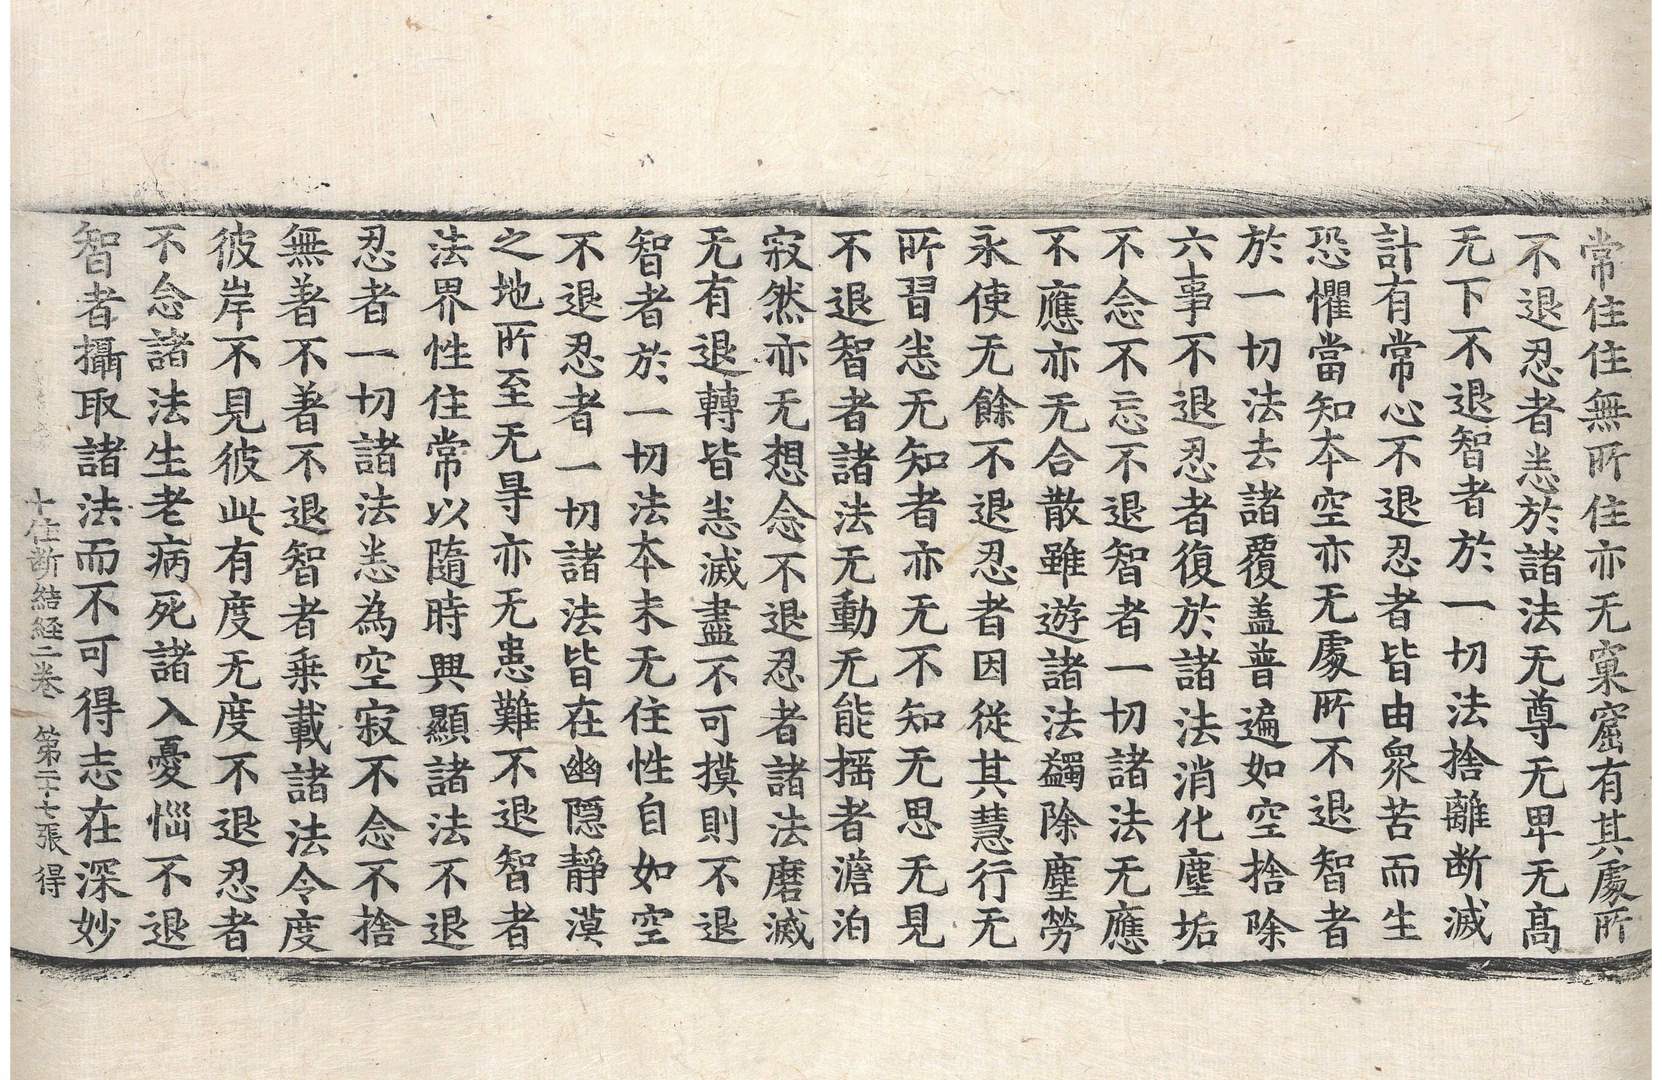 常住住無所住亦无窠窟有其處所
不退忍者恙於諸法无尊无卑无高
无下不退智者於一切法捨離断滅
計有常心不退忍者皆由衆苦而生
恐懼當知本空亦无處所不退智者
於一切法去諸覆盖普遍如空捨除
六事不退忍者復於諸法消化塵垢
不念不忘不退智者一切諸法无應
不應亦无合散雖遊諸法蠲除塵勞
永使无餘不退忍者因從其慧行无
所習恙无知者亦无不知无思无見
不退智者諸法无動无能揺者澹泊
寂然亦无想念不退忍者諸法磨滅
无有退轉皆恙滅盡不可摸則不退
智者於一切法本末无住性自如空
不退忍者一切諸法皆在幽隱靜漠
之地所至无㝵亦无患難不退智者
法界性住常以隨時興顯諸法不退
忍者一切諸法恙為空寂不念不捨
無著不著不退智者乗載諸法令度
彼岸不見彼此有度无度不退忍者
不念諸法生老病死諸入憂惱不退
智者攝取諸法而不可得志在深妙
十住断結経二卷 第二十七張 得